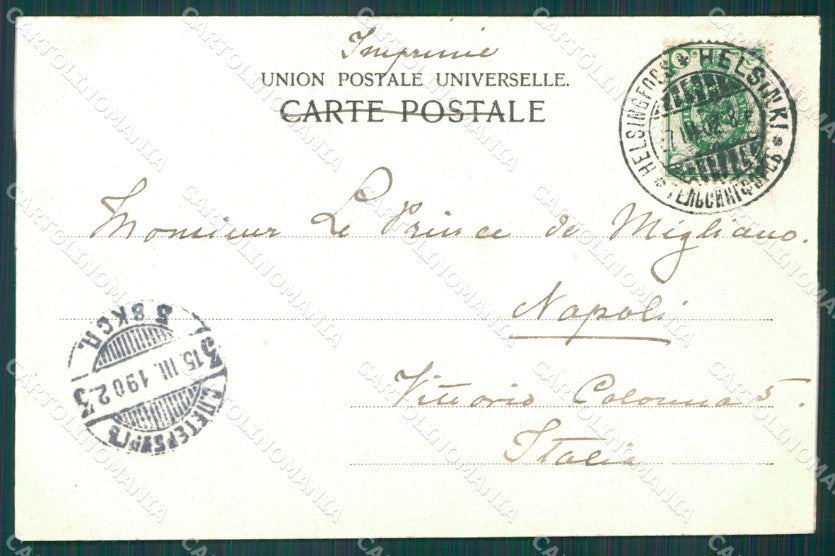 Imprimé
UNION POSTALE UNIVERSELLE.
CARTE POSTALE
HELSINGFORS * HELSINKI * ГЕЛЬСИНГФОРСЪ *
Monsieur Le Prince de Migliano.
Napoli
Vittorio Colonna 5.
Italia
5 ЭКСП.
3 15.III.1902 3
С.ПЕТЕРБУРГЪ
CARTOLINOMANIA